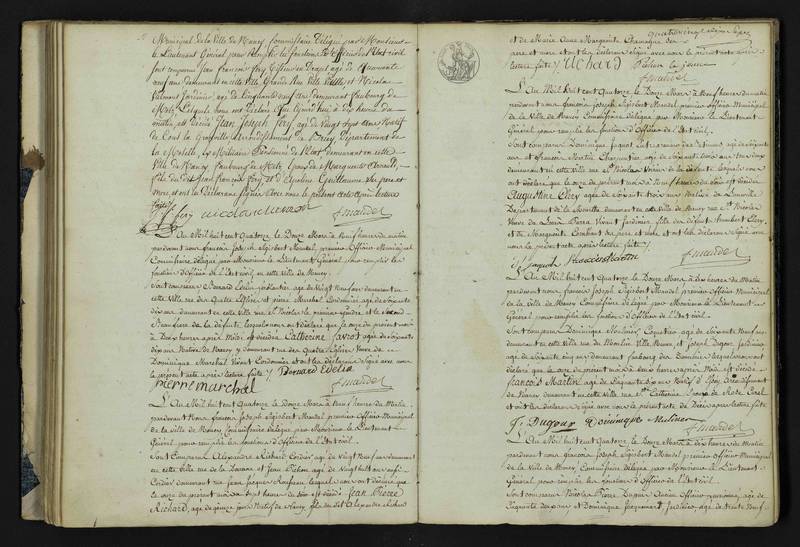 Municipal de la Ville de Nancy Commissaire délégué par Monsieur
le Lieutenant Général pour remplir les fonctions d'Officier de l'Etat civil
sont comparus Jean François Fery Tisseur en Draps agé de Quarante
cinq ans demeurant en cette Ville Grande Rue Ville Vieille et Nicolas
Jardinier, agé de Cinquante neuf ans demeurant faubourg de
Metz Lesquels nous ont déclaré que Aujourd'hui à dix heures du
matin est décédé Jean Joseph Fery agé de Vingt Sept ans Natif
de Département de
la Moselle Ex Militaire Pensionné de l'Etat demeurant en cette
Ville de Nancy faubourg de Metz Epoux de Marguerite
fils du dit Jean François Fery et d'Apoline Guillaume ses pere et
mere, et ont les Déclarans signés Avec nous le présent acte après lecture
faite
J F fery nicolas Mandel
L'An Mil huit cent Quatorze le Douze Mars à Neuf heures du matin
pardevant nous françois Joseph Sigisbert Mandel, premier Officier Municipal
Commissaire délégué par Monsieur le Lieutenant Général pour remplir les
fonctions d'Officier de l'Etat civil en cette ville de Nancy.
Sont comparus Bernard agé de Vingt Neuf ans demeurant en
cette Ville rue des Quatre Eglises et pierre Marchal Cordonnier agé de soixante
dix ans demeurant en cette ville rue St Nicolas le premier gendre et le second
Beau frere de la défunte lesquels nous ont déclaré que le onze du présent mois
à Deux heures après Midi est décédée Catherine Savot agée de soixante
dix ans Native de Nancy y demeurant rue des Quatre Eglises Veuve de
Dominique Marchal Vivant Cordonnier et ont les déclarans signés avec nous
le présent acte après lecture faite Bernard Edelin
Pierre marchal Mandel
L'An Mil huit cent Quatorze le Douze Mars à Neuf heures du Matin
pardevant nous françois Joseph Sigisbert Mandel premier Officier Municipal
de la ville de Nancy Commissaire délégué par Monsieur le Lieutenant
Général pour remplir les fonctions d'Officier de l'Etat Civil.
Sont Comparus Alexandre Richard Cordier agé de Vingt Neuf ans demeurant
en cette ville rue de la et Jean Pichon agé de Vingt huit ans aussi
Cordier demeurant rue Jean Jacques Rousseau lesquels nous ont déclaré que
le onze du présent mois à sept heures du soir est décédé Jean Pierre
Richard, agé de quinze jours Natif de Nancy fils du dit Alexandre Richard
et de Marie Anne Marguerite
pere et mere et ont les déclarans signés avec nous le présent acte après
lecture faite Richard Pichon le jeune
Mandel
L'An Mil huit cent Quatorze le Douze Mars à Neuf heures du matin
pardevant nous françois Joseph Sigisbert Mandel premier Officier Municipal
de la Ville de Nancy Commissaire délégué par Monsieur le Lieutenant
Général pour remplir les fonctions d'Officier de l'Etat Civil.
Sont comparus Dominique Jaquot agé de soixante
ans et François Charpentier agé de soixante trois ans tous deux
demeurant en cette Ville rue St Nicolas Voisins de la défunte lesquels nous
ont déclaré que le onze du présent mois à Neuf heures du soir est décédée
Augustine Clery agée de soixante trois ans Native de Lunéville
Département de la Meurthe demeurant en cette ville de Nancy rue St Nicolas
Veuve de Louis Vivant Jardinier fille des défunts Humbert Clery
et de Marguerite ses pere et mere et ont les déclarans signés avec
nous le présent acte après lecture faite
D Jaquot Mandel
L'An Mil huit cent Quatorze le Douze Mars à dix heures du Matin
pardevant nous françois Joseph Sigisbert Mandel premier Officier Municipal
de la Ville de Nancy Commissaire délégué par Monsieur le Lieutenant
Général pour remplir les fonctions d'Officier de l'Etat Civil.
Sont comparus Dominique Molinier Coquetier agé de Soixante Neuf ans
demeurant en cette ville rue du Moulin Ville Neuve et Joseph Dugour Jardinier
agé de soixante cinq ans demeurant faubourg des lesquels nous ont
déclaré que le onze du présent mois à deux heures après Midi est décédé
François Martin agé de Cinquante dix ans Natif d' Arrondissement
de Nancy demeurant en cette ville rue St Catherine Epoux de Rose
et ont les déclarans signés avec nous le présent acte de Décès après lecture faite
J. Dugour Dominique Mulinier
Mandel
L'An Mil huit cent Quatorze le Douze Mars à Dix heures du matin
pardevant nous françois Joseph Sigisbert Mandel premier Officier Municipal
de la Ville de Nancy, Commissaire délégué par Monsieur le Lieutenant
Général pour remplir les fonctions d'Officier de l'Etat Civil.
Sont comparus Nicolas Pierre Ancien Officier agé de
Cinquante deux ans et Dominique Jacquemart, Jardinier agé de trente Neuf